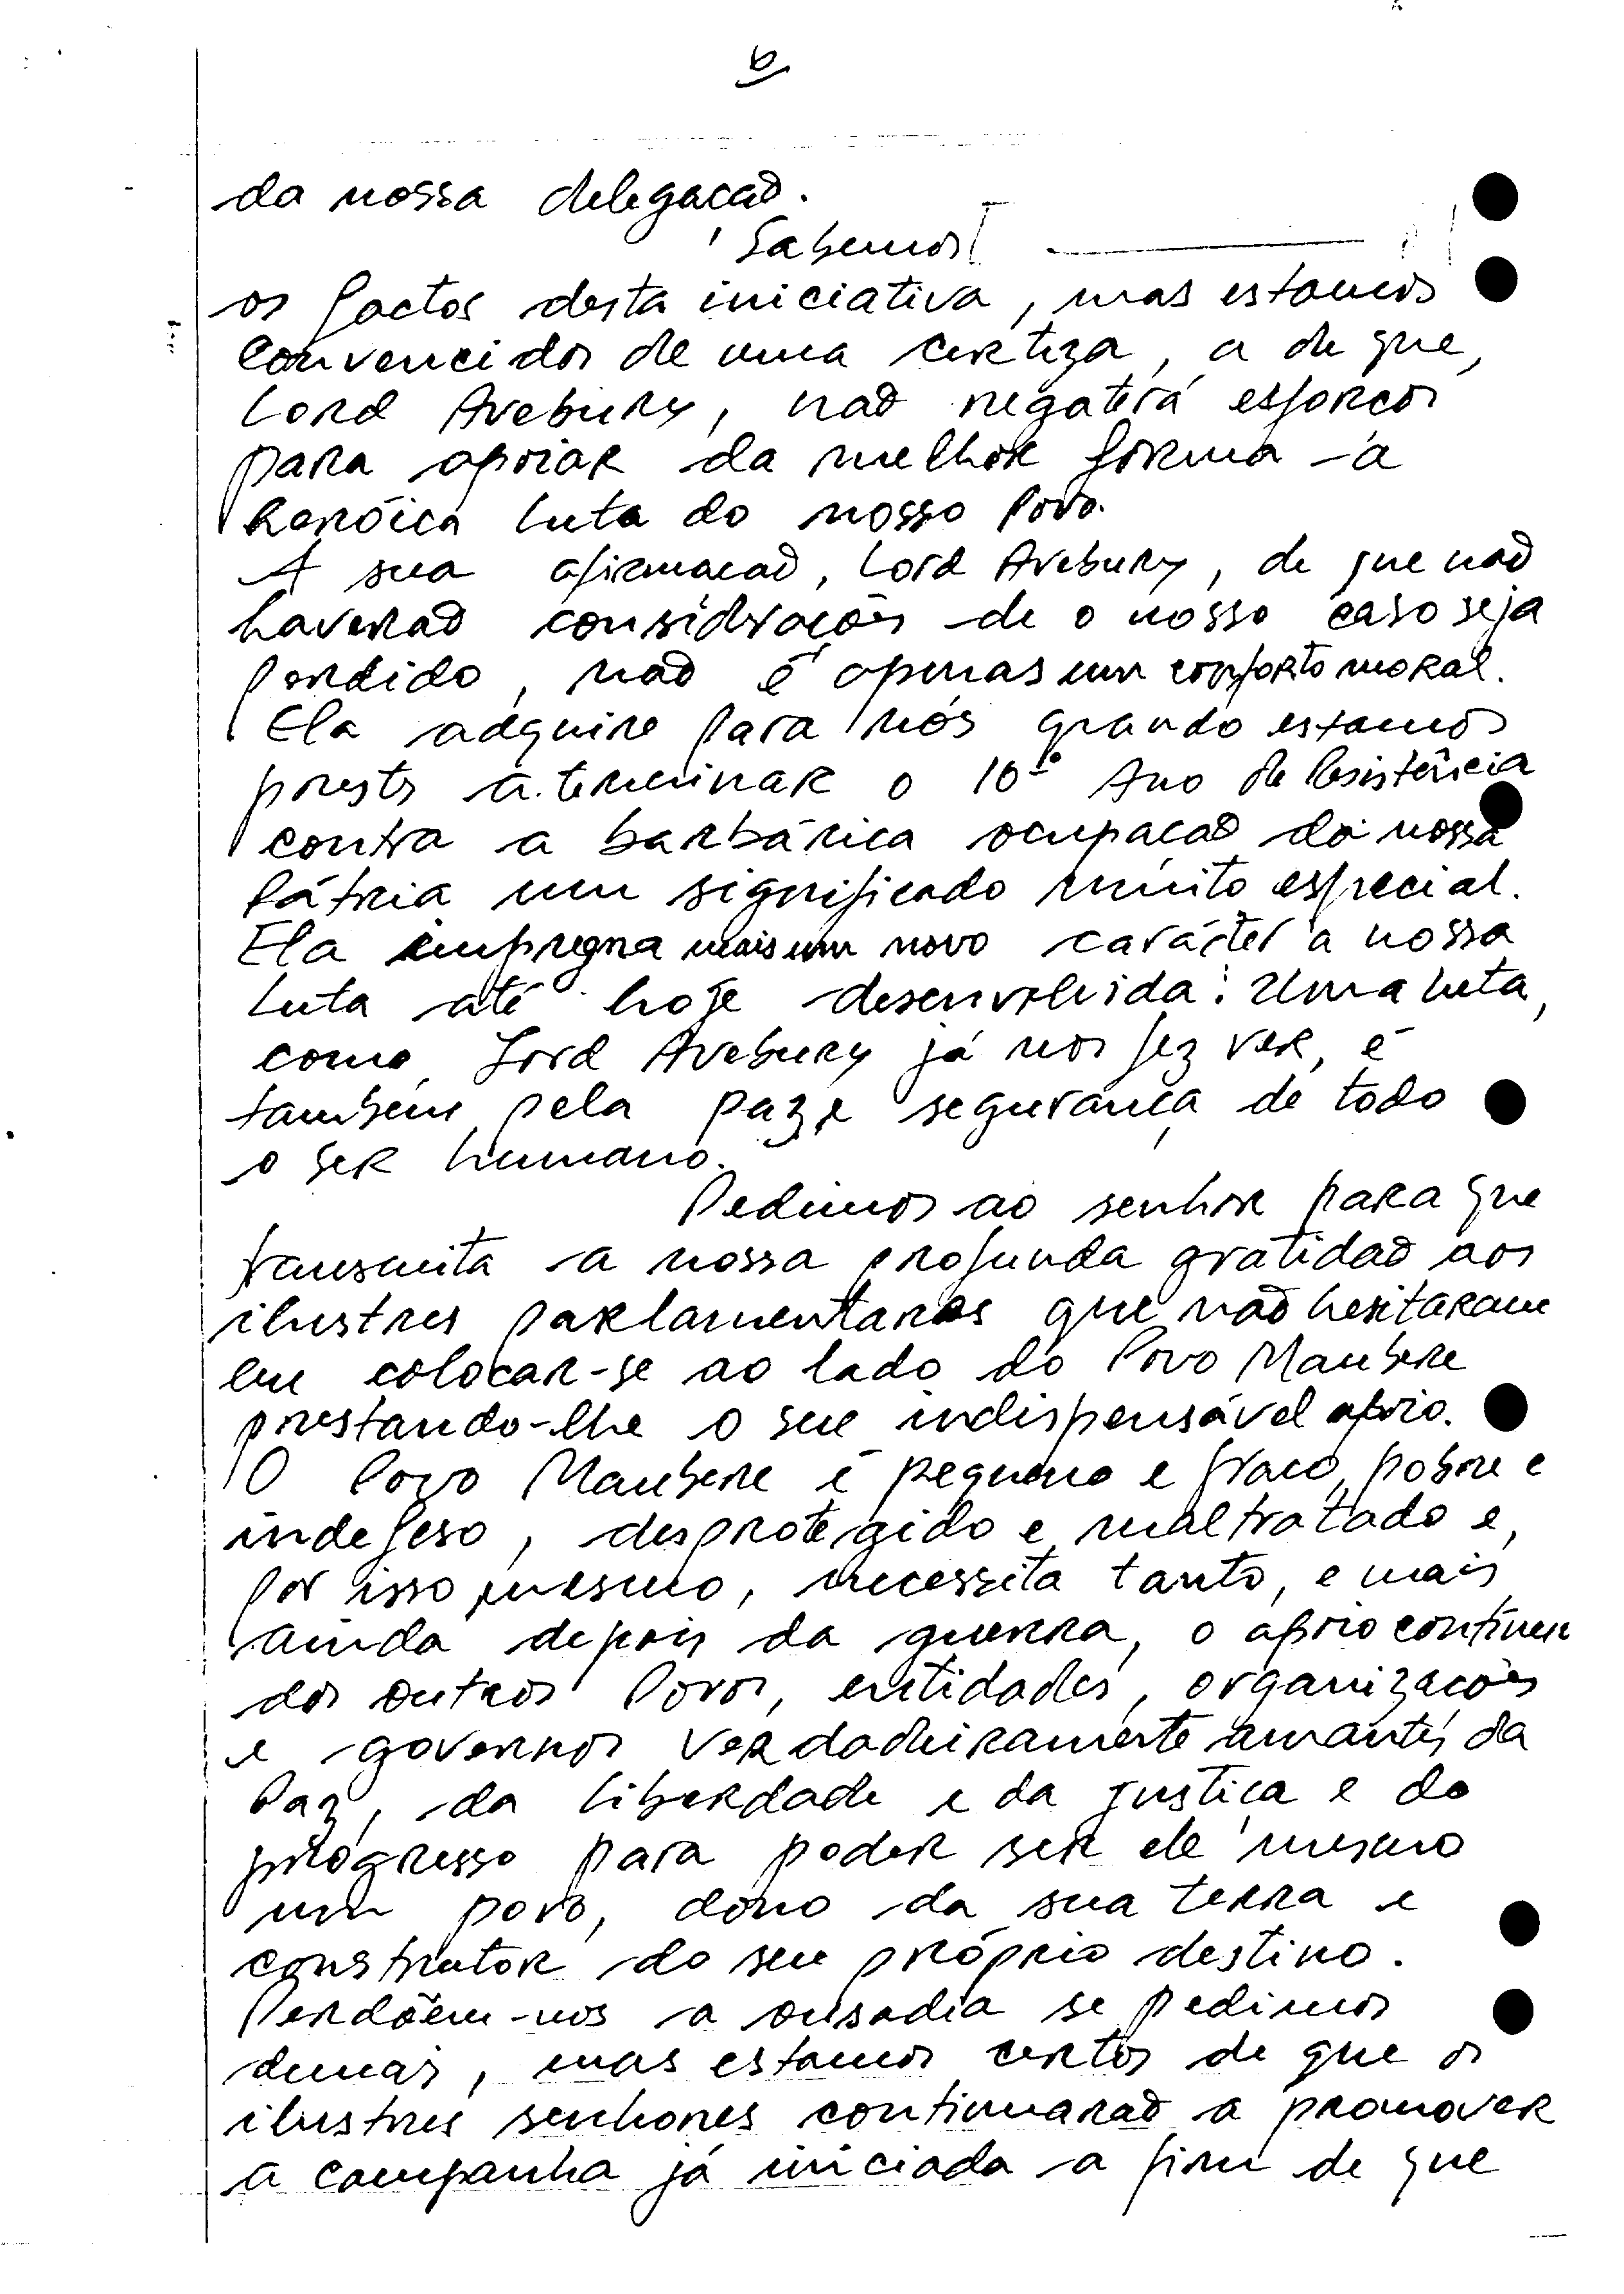 6
da nossa delegação.
Sabemos
os factos desta iniciativa, mas estamos
convencidos de uma certeza, a de que,
Lord Avebury, não regateará esforços
para apoiar da melhor forma a
heróica luta do nosso Povo.
A sua afirmação, Lord Avebury, de que não
haverão considerações de o nosso caso seja
perdido, não é apenas um conforto moral.
Ela adquire para nós quando estamos
prestes a terminar o 10º Ano de Resistência
contra a barbárica ocupação da nossa
Pátria um significado muito especial.
Ela impregna mais um novo carácter à nossa
luta até hoje desenvolvida: Uma luta,
como Lord Avebury já nos fez ver, é
também pela paz e segurança de todo
o ser humano.
Pedimos ao senhor para que
transmita a nossa profunda gratidão aos
ilustres parlamentares que não hesitaram
em colocar-se ao lado do Povo Maubere
prestando-lhe o seu indispensável apoio.
O Povo Maubere é pequeno e fraco, pobre e
indefeso, desprotegido e maltratado e,
por isso mesmo, necessita tanto, e mais
ainda depois da guerra, o apoio contínuo
dos outros Povos, entidades, organizações
e governos verdadeiramente amantes da
Paz, da liberdade e da justiça e do
progresso para poder ser ele mesmo
um povo, dono da sua terra e
construtor do seu próprio destino.
Perdõem-nos a ousadia se pedimos
demais, mas estamos certos de que os
ilustres senhores continuarão a promover
a campanha já iniciada a fim de que